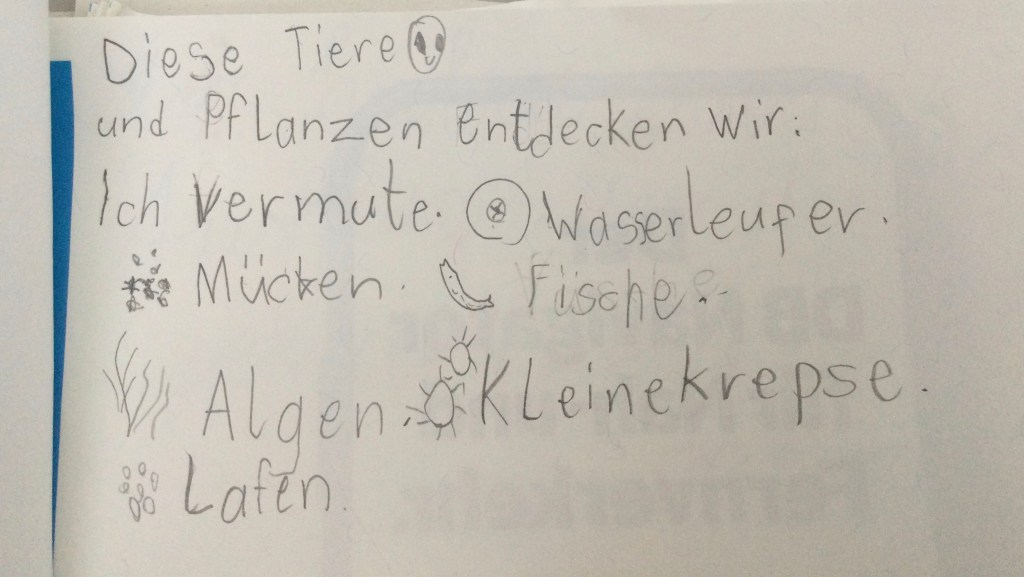 Diese Tiere
und Pflanzen entdecken wir:
Ich vermute. Wasserleufer.
Mücken. Fische.
Algen. Kleinekrepse.
Lafen.